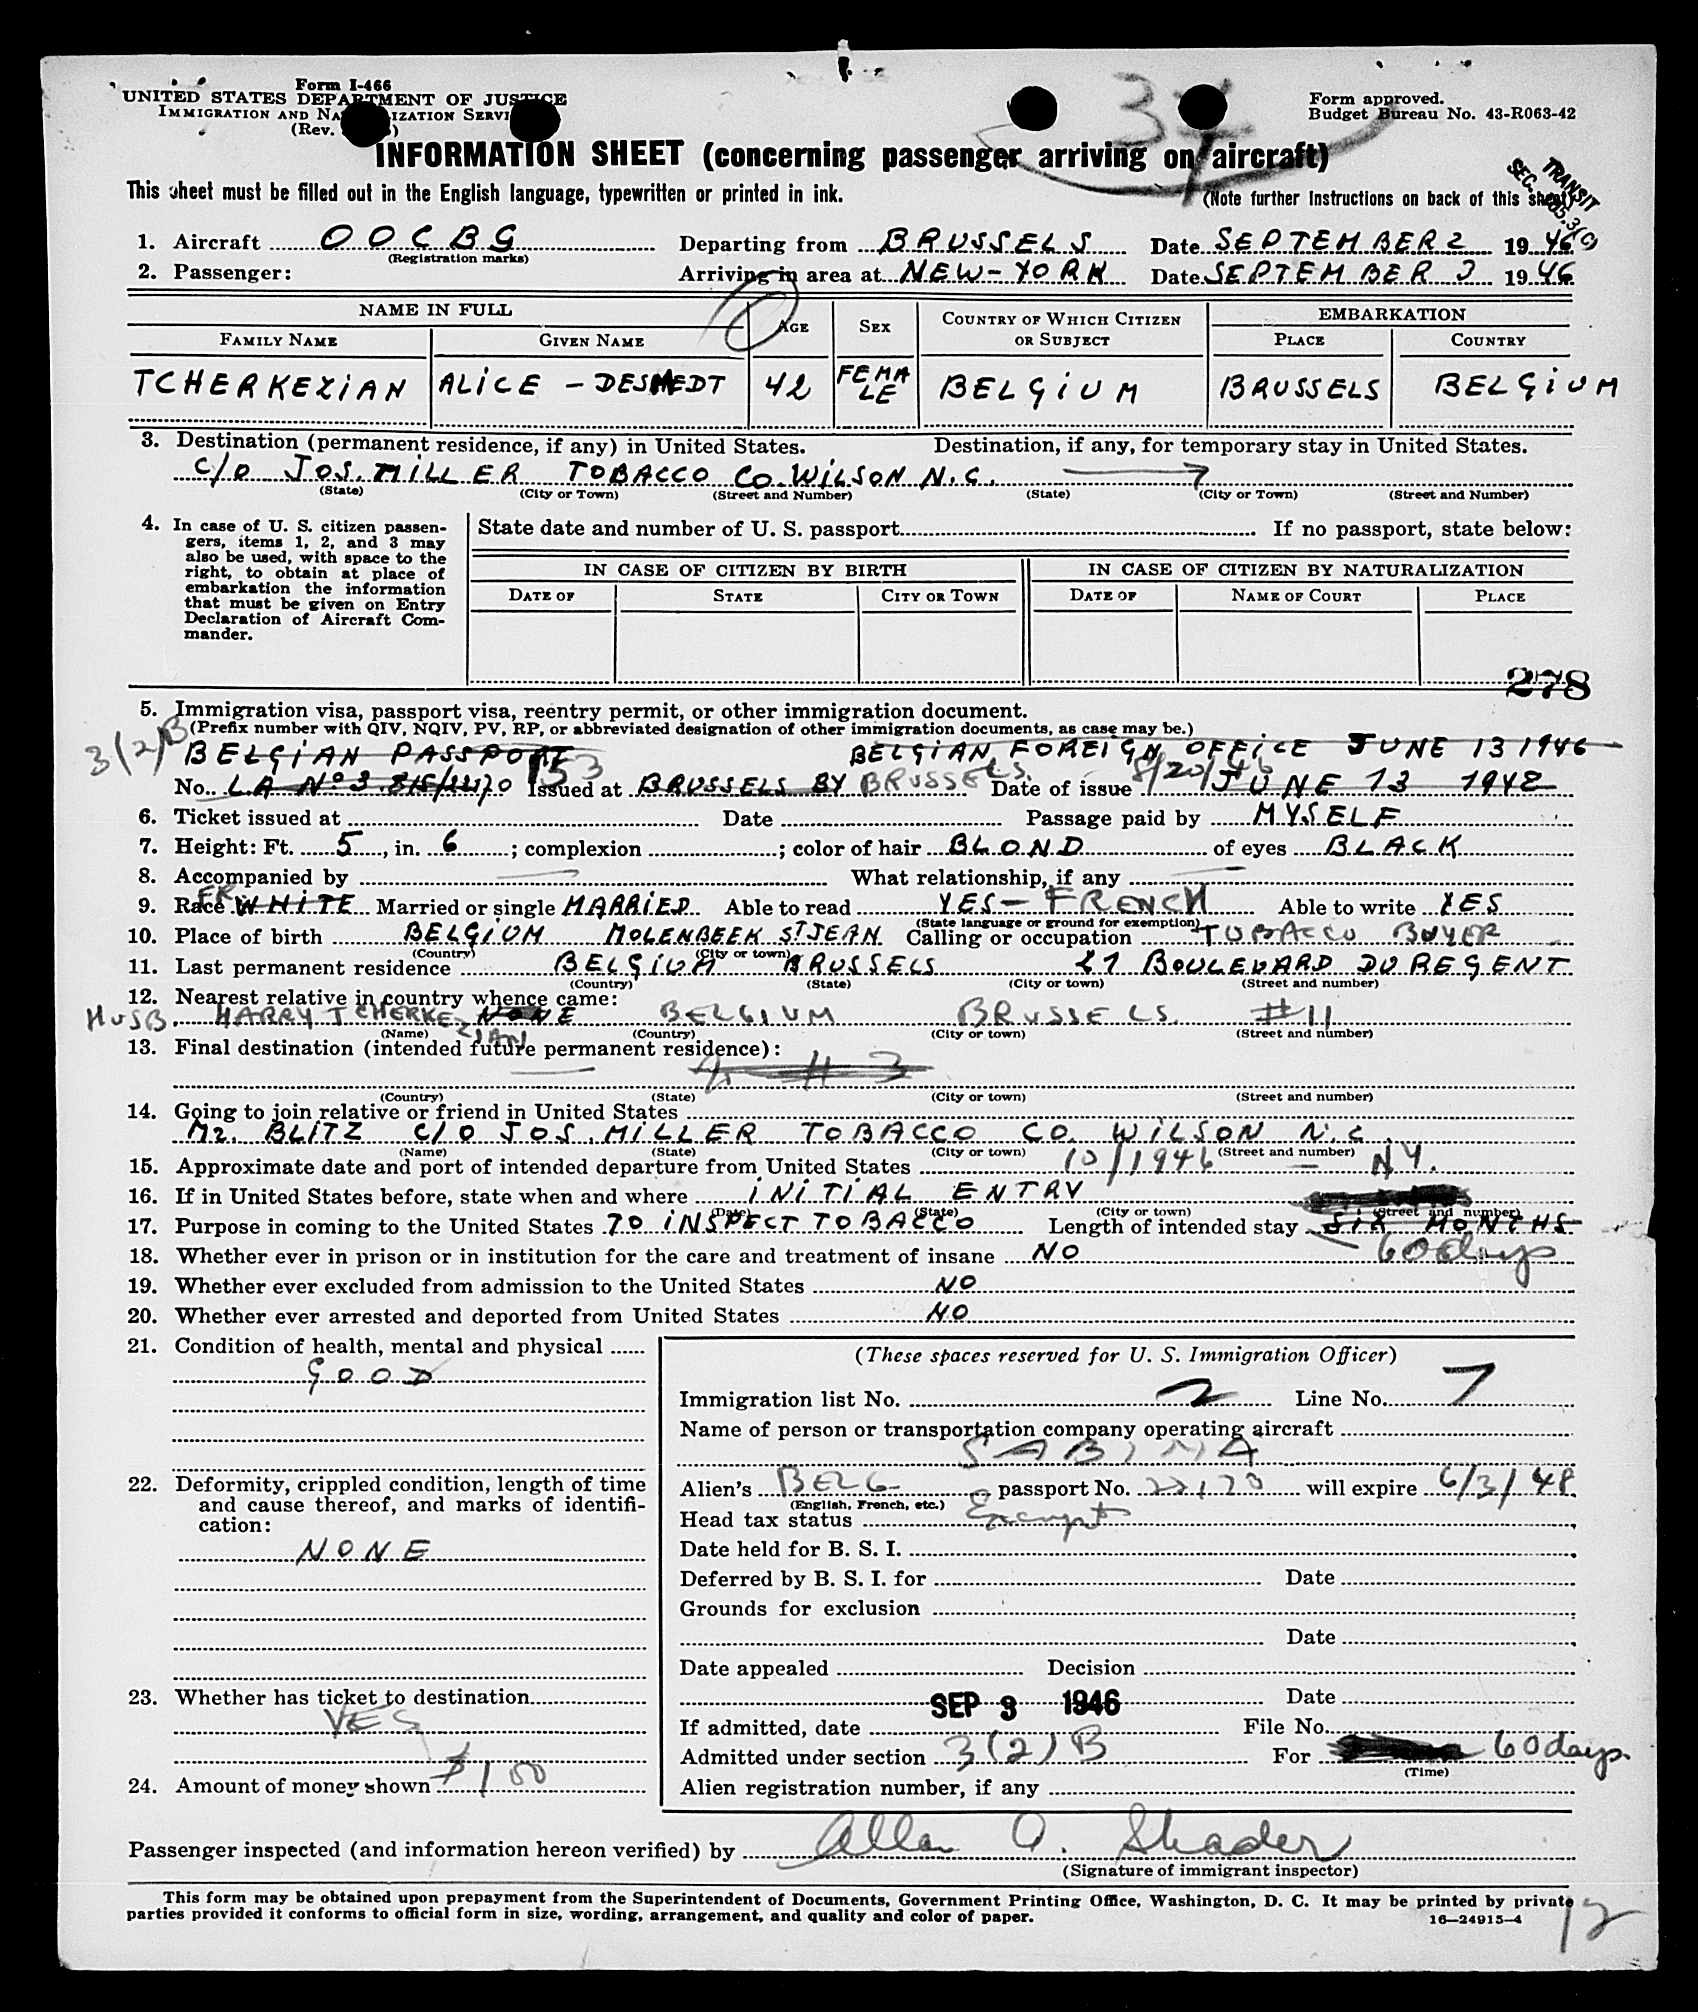 Form I-466
UNITED STATES DEPARTMENT OF JUSTICE
IMMIGRATION AND NATURALIZATION SERVICE
(Rev. )
Form approved.
Budget Bureau No. 43-R063-42
34
INFORMATION SHEET (concerning passenger arriving on aircraft)
This sheet must be filled out in the English language, typewritten or printed in ink.
(Note further instructions on back of this sheet)
TRANSIT
SEC.
1. Aircraft OOCBG Departing from BRUSSELS Date SEPTEMBER 2 1946
(Registration marks)
2. Passenger: Arriving in area at NEW-YORK Date SEPTEMBER 3 1946
NAME IN FULL AGE SEX COUNTRY OF WHICH CITIZEN OR SUBJECT EMBARKATION
FAMILY NAME GIVEN NAME PLACE COUNTRY
TCHERKEZIAN ALICE - DESMEDT 42 FEMALE BELGIUM BRUSSELS BELGIUM
3. Destination (permanent residence, if any) in United States. Destination, if any, for temporary stay in United States.
C/O JOS. MILLER TOBACCO CO. WILSON N.C.
(State) (City or Town) (Street and Number) (State) (City or Town) (Street and Number)
4. In case of U. S. citizen passengers, items 1, 2, and 3 may also be used, with space to the right, to obtain at place of embarkation the information that must be given on Entry Declaration of Aircraft Commander.
State date and number of U. S. passport If no passport, state below:
IN CASE OF CITIZEN BY BIRTH IN CASE OF CITIZEN BY NATURALIZATION
DATE OF STATE CITY OR TOWN DATE OF NAME OF COURT PLACE
278
5. Immigration visa, passport visa, reentry permit, or other immigration document.
(Prefix number with QIV, NQIV, PV, RP, or abbreviated designation of other immigration documents, as case may be.)
3(2)B BELGIAN PASSPORT BELGIAN FOREIGN OFFICE JUNE 13 1946
No. LA No 3 Issued at BRUSSELS BY BRUSSELS. Date of issue 8/20/46 JUNE 13 1948
6. Ticket issued at Date Passage paid by MYSELF
7. Height: Ft. 5, in. 6; complexion ; color of hair BLOND of eyes BLACK
8. Accompanied by What relationship, if any
9. Race FR WHITE Married or single MARRIED Able to read YES - FRENCH Able to write YES
(State language or ground for exemption)
10. Place of birth BELGIUM MOLENBEEK ST JEAN Calling or occupation TOBACCO BUYER
(Country) (City or town)
11. Last permanent residence BELGIUM BRUSSELS 27 BOULEVARD DU REGENT
(Country) (State) (City or town) (Street and number)
12. Nearest relative in country whence came:
HUSB. HARRY TCHERKEZIAN NONE BELGIUM BRUSSELS. #11
(Name) (Country) (City or town) (Street and number)
13. Final destination (intended future permanent residence):
# 3
(Country) (State) (City or town) (Street and number)
14. Going to join relative or friend in United States
Mr. BLITZ C/O JOS. MILLER TOBACCO CO. WILSON N.C.
(Name) (State) (City or town) (Street and number)
15. Approximate date and port of intended departure from United States 10/1946 - NY.
16. If in United States before, state when and where INITIAL ENTRY
(Date) (State) (City or town) (Street and number)
17. Purpose in coming to the United States TO INSPECT TOBACCO Length of intended stay SIX MONTHS
60 days
18. Whether ever in prison or in institution for the care and treatment of insane NO
19. Whether ever excluded from admission to the United States NO
20. Whether ever arrested and deported from United States NO
21. Condition of health, mental and physical
GOOD
22. Deformity, crippled condition, length of time and cause thereof, and marks of identification:
NONE
23. Whether has ticket to destination
YES
24. Amount of money shown $100
(These spaces reserved for U. S. Immigration Officer)
Immigration list No. 2 Line No. 7
Name of person or transportation company operating aircraft
SABINA
Alien's BELG passport No. will expire 6/3/48
(English, French, etc.)
Head tax status Exempt
Date held for B. S. I.
Deferred by B. S. I. for Date
Grounds for exclusion
Date
Date appealed Decision
Date
If admitted, date SEP 3 1946 File No.
Admitted under section 3(2)B For 60 days.
(Time)
Alien registration number, if any
Passenger inspected (and information hereon verified) by Allan A. Shader
(Signature of immigrant inspector)
This form may be obtained upon prepayment from the Superintendent of Documents, Government Printing Office, Washington, D. C. It may be printed by private
parties provided it conforms to official form in size, wording, arrangement, and quality and color of paper.
16-24915-4
12